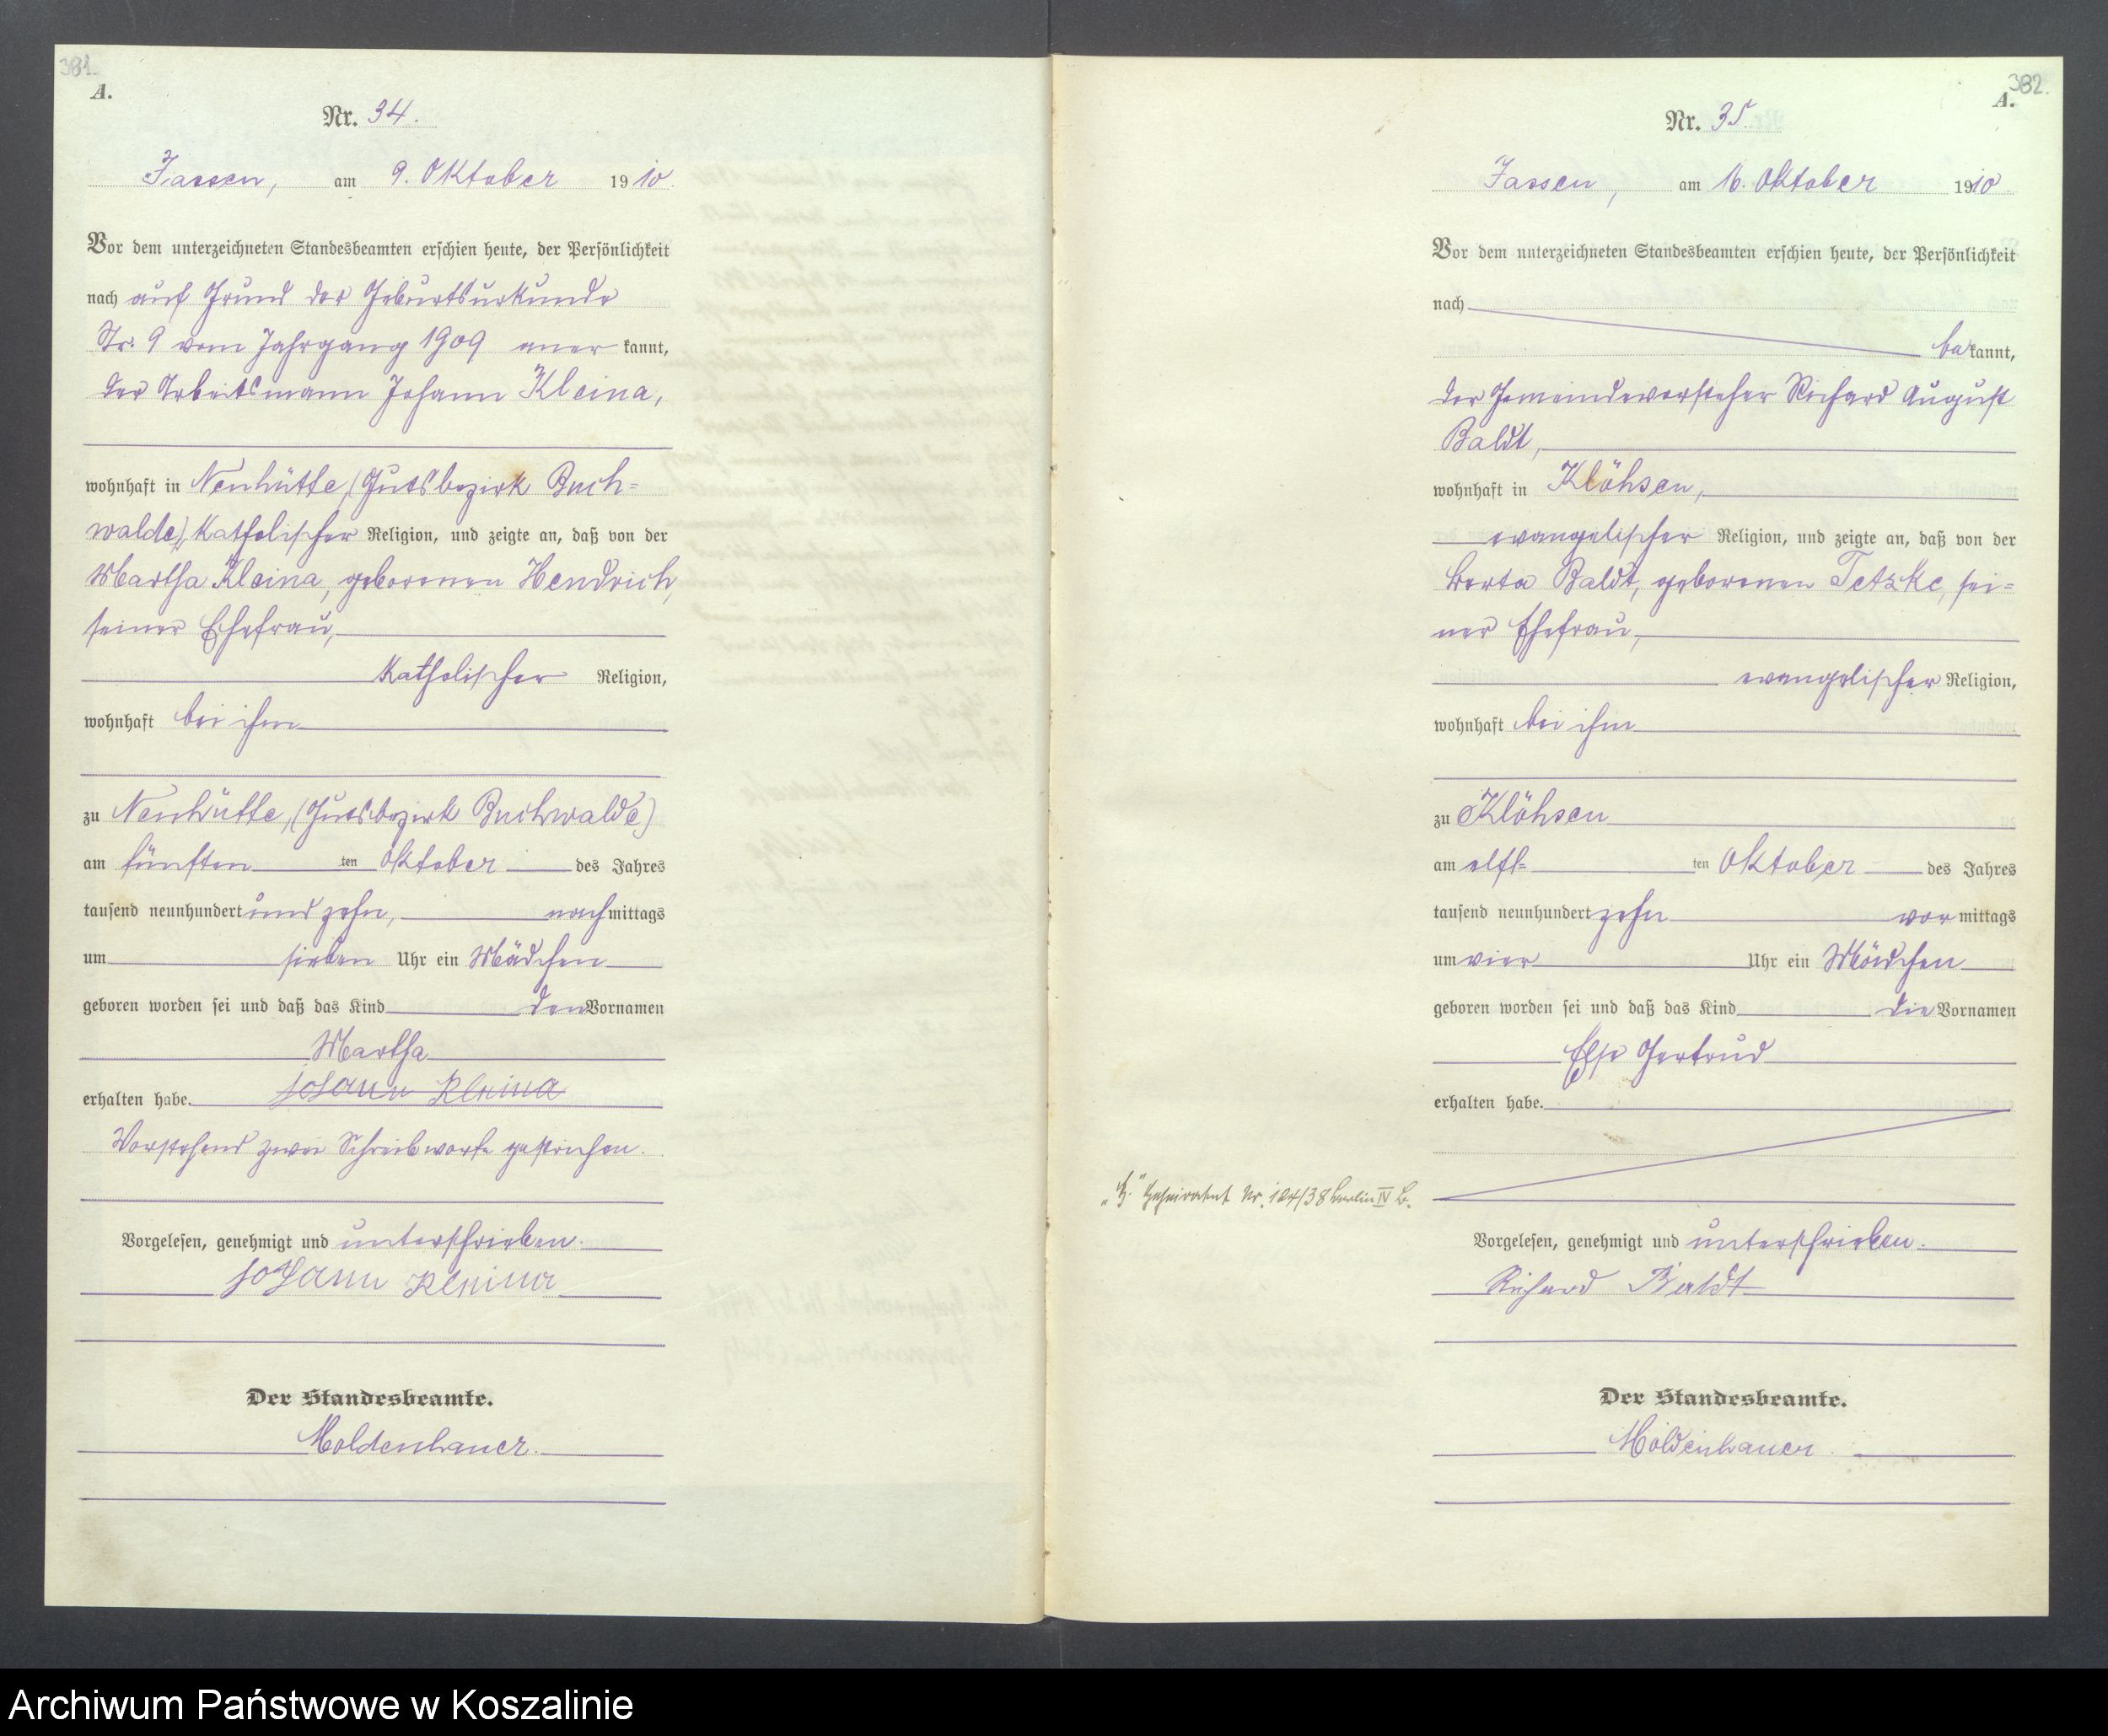 381.
A.
Nr. 34.
Jassen, am 9. Oktober 1910.
Vor dem unterzeichneten Standesbeamten erschien heute, der Persönlichkeit
nach auf Grund der Geburtsurkunde
Nr. 9 vom Jahrgang 1909 anerkannt,
der Arbeitsmann Johann Kleina,
wohnhaft in Neuhütte, (Gutsbezirk Buch-
walde), katholischer Religion, und zeigte an, daß von der
Martha Kleina, geborenen Hendrich,
seiner Ehefrau,
katholischer Religion,
wohnhaft bei ihm
zu Neuhütte, (Gutsbezirk Buchwalde)
am fünften ten Oktober des Jahres
tausend neunhundert und zehn, nachmittags
um sieben Uhr ein Mädchen
geboren worden sei und daß das Kind den Vornamen
Martha
erhalten habe. Johann Kleina
Vorstehend zwei Schreibworte gestrichen.
Vorgelesen, genehmigt und unterschrieben.
Johann Kleina
Der Standesbeamte.
Moldenhauer.
382.
A.
Nr. 35.
Jassen, am 16. Oktober 1910
Vor dem unterzeichneten Standesbeamten erschien heute, der Persönlichkeit
nach
bekannt,
der Gemeindevorsteher Richard August
Baldt,
wohnhaft in Klöhsen,
evangelischer Religion, und zeigte an, daß von der
Berta Baldt, geborenen Tetzke, sei-
ner Ehefrau,
evangelischer Religion,
wohnhaft bei ihm
zu Klöhsen
am elf ten Oktober des Jahres
tausend neunhundert zehn vormittags
um vier Uhr ein Mädchen
geboren worden sei und daß das Kind die Vornamen
Else Gertrud
erhalten habe.
"H." Geheiratet Nr. 124/38 Berlin IV B.
Vorgelesen, genehmigt und unterschrieben.
Richard Baldt
Der Standesbeamte.
Moldenhauer.
Archiwum Państwowe w Koszalinie